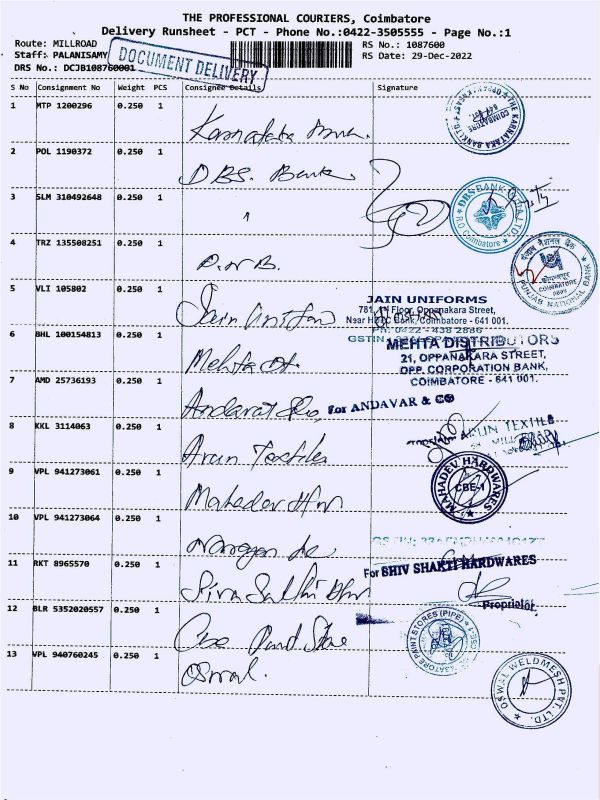 THE PROFESSIONAL COURIERS, Coimbatore
Delivery Runsheet - PCT - Phone No.:0422-3505555 - Page No.:1
Route: MILLROAD
RS No.: 1087600
Staff: PALANISAMY
RS Date: 29-Dec-2022
DRS No.: DCJB108760001
DOCUMENT DELIVERY
S No Consignment No Weight PCS Consignee Details Signature
1 MTP 1200296 0.250 1 Karnataka Bank.
THE KARNATAKA BANK LTD. COIMBATORE
2 POL 1190372 0.250 1 DBS. Bank
3 SLM 310492648 0.250 1 "
DBS BANK LTD. Coimbatore
4 TRZ 135508251 0.250 1 P.N.B.
पंजाब नैशनल बैंक
PUNJAB NATIONAL BANK
COIMBATORE
5 VLI 105802 0.250 1 Jain Uniform
JAIN UNIFORMS
781, 1st Floor, Oppanakara Street,
Near HDFC Bank, Coimbatore - 641 001.
Ph: 0422 - 438 2886
GSTIN
6 BHL 100154813 0.250 1 Mehta Dt.
MEHTA DISTRIBUTORS
21, OPPANAKARA STREET,
OPP. CORPORATION BANK,
COIMBATORE - 641 001.
7 AMD 25736193 0.250 1 Andavar & Co,
For ANDAVAR & CO
8 KKL 3114063 0.250 1 Arun Textiles
ARUN TEXTILE
9 VPL 941273061 0.250 1 Mahadev H/w
MAHADEV HARDWARES
CBE-1
10 VPL 941273064 0.250 1
11 RKT 8965570 0.250 1 Siva Sakthi H/w
For SHIV SHAKTI HARDWARES
Proprietor
12 BLR 5352020557 0.250 1 Cbe Paint Store
COIMBATORE PAINT STORES (PIPE)
13 VPL 940760245 0.250 1 Oswal.
OSWAL WELDMESH PVT. LTD.